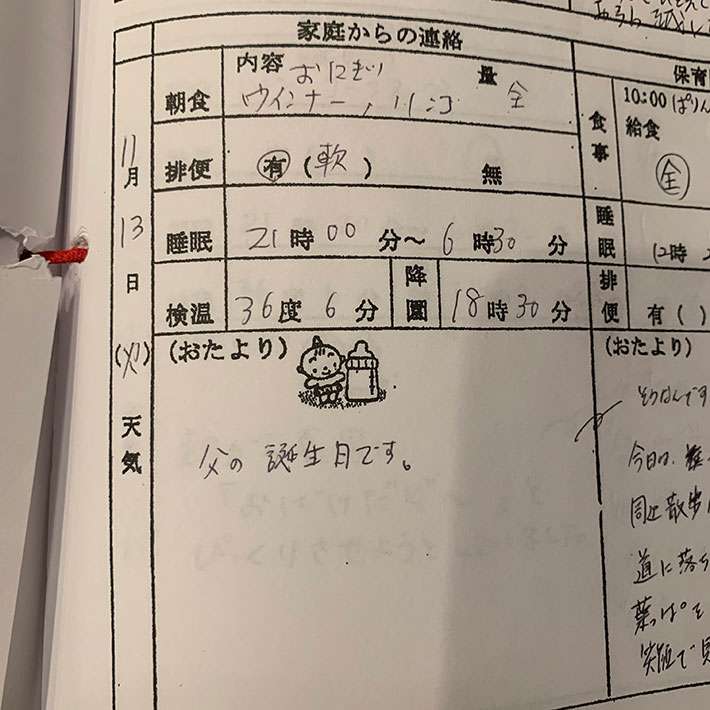 家庭からの連絡
11月13日(火)
天気
朝食 内容 おにぎり 量
ウインナー, リンゴ 全
排便 有(軟) 無
睡眠 21時00分〜6時30分
検温 36度6分 降園 18時30分
(おたより)
父の誕生日です。
保育
食事 10:00
給食
全
睡眠 12時
排便 有( )
(おたより)
そうなんです
今日は、
散歩
道に落ち
葉っぱを
笑顔で